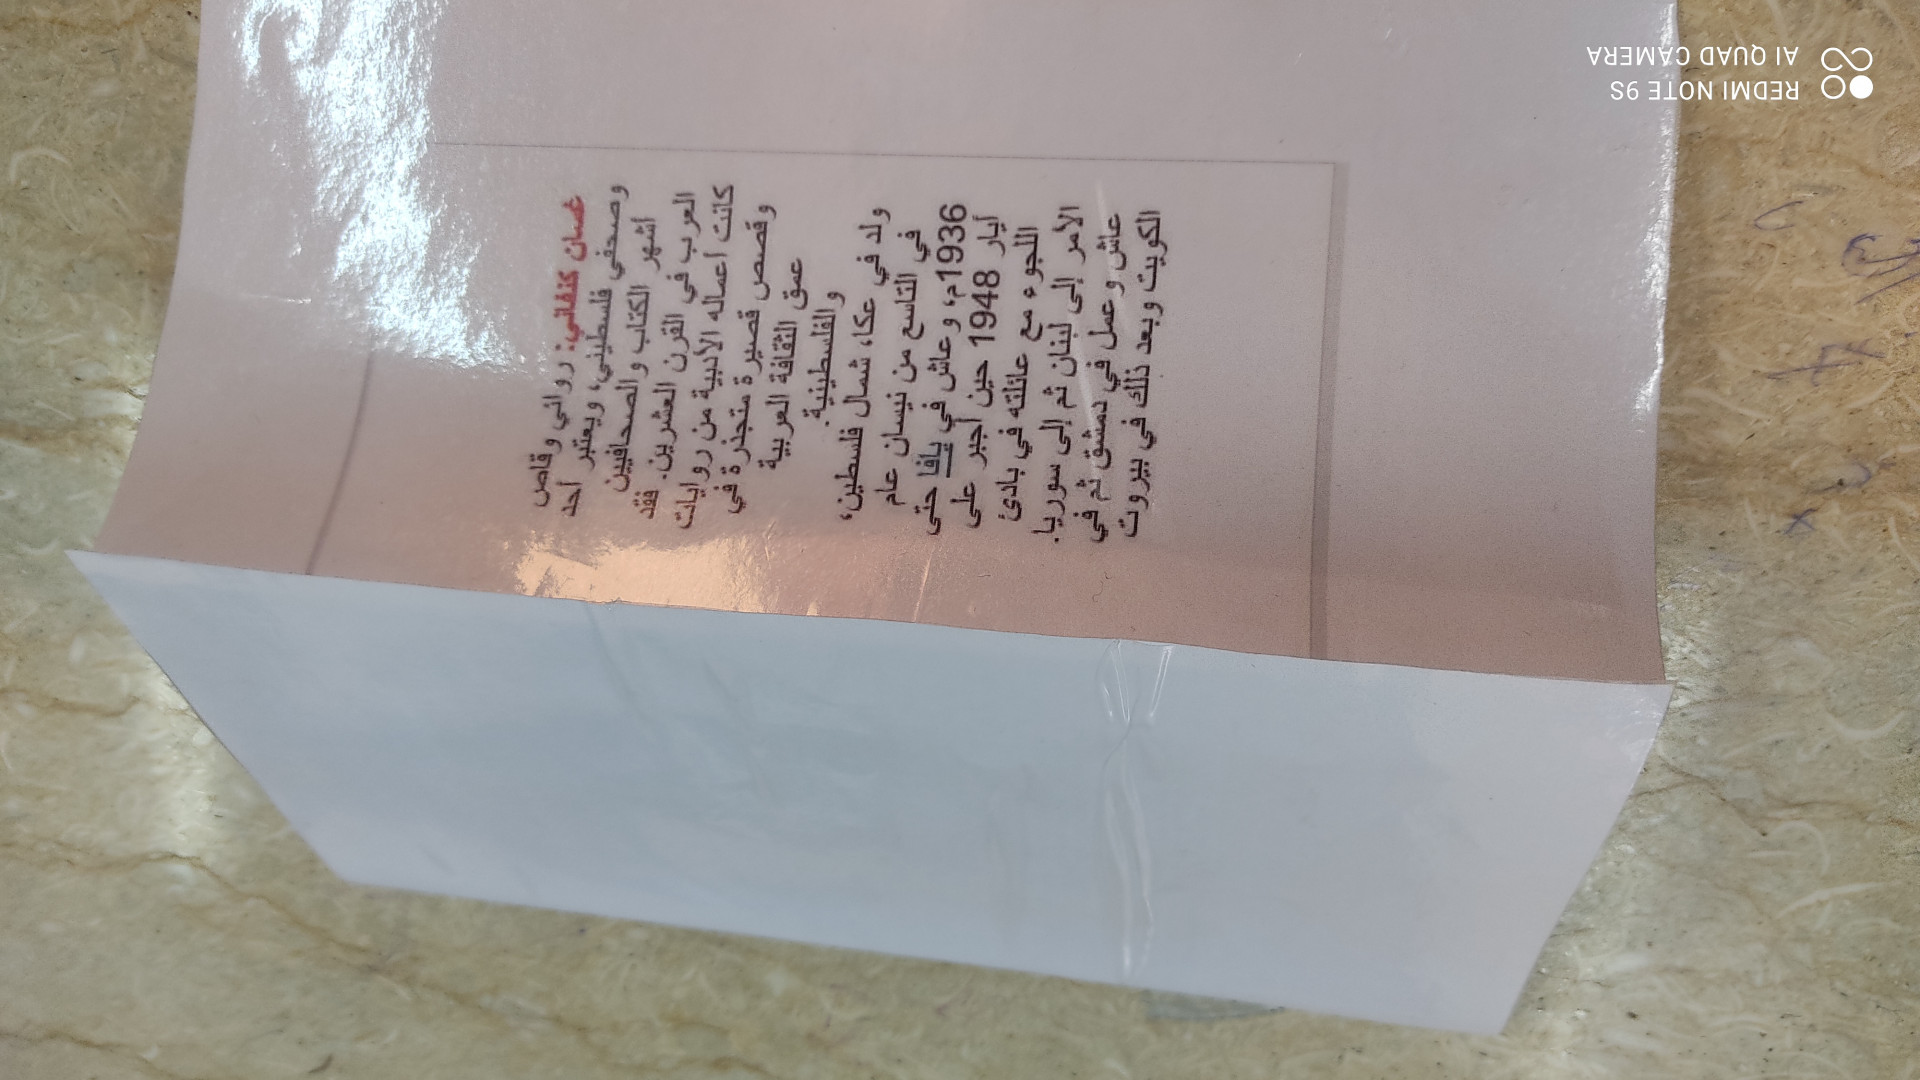 غسان كنفاني: روائي وقاص
وصحفي فلسطيني، ويعتبر أحد
أشهر الكتاب والصحافيين
العرب في القرن العشرين. فقد
كانت أعماله الأدبية من روايات
وقصص قصيرة متجذرة في
عمق الثقافة العربية
والفلسطينية.
ولد في عكا، شمال فلسطين،
في التاسع من نيسان عام
1936م، وعاش في يافا حتى
أيار 1948 حين أجبر على
اللجوء مع عائلته في بادئ
الأمر إلى لبنان ثم إلى سوريا.
عاش وعمل في دمشق ثم في
الكويت وبعد ذلك في بيروت
REDMI NOTE 9S
AI QUAD CAMERA